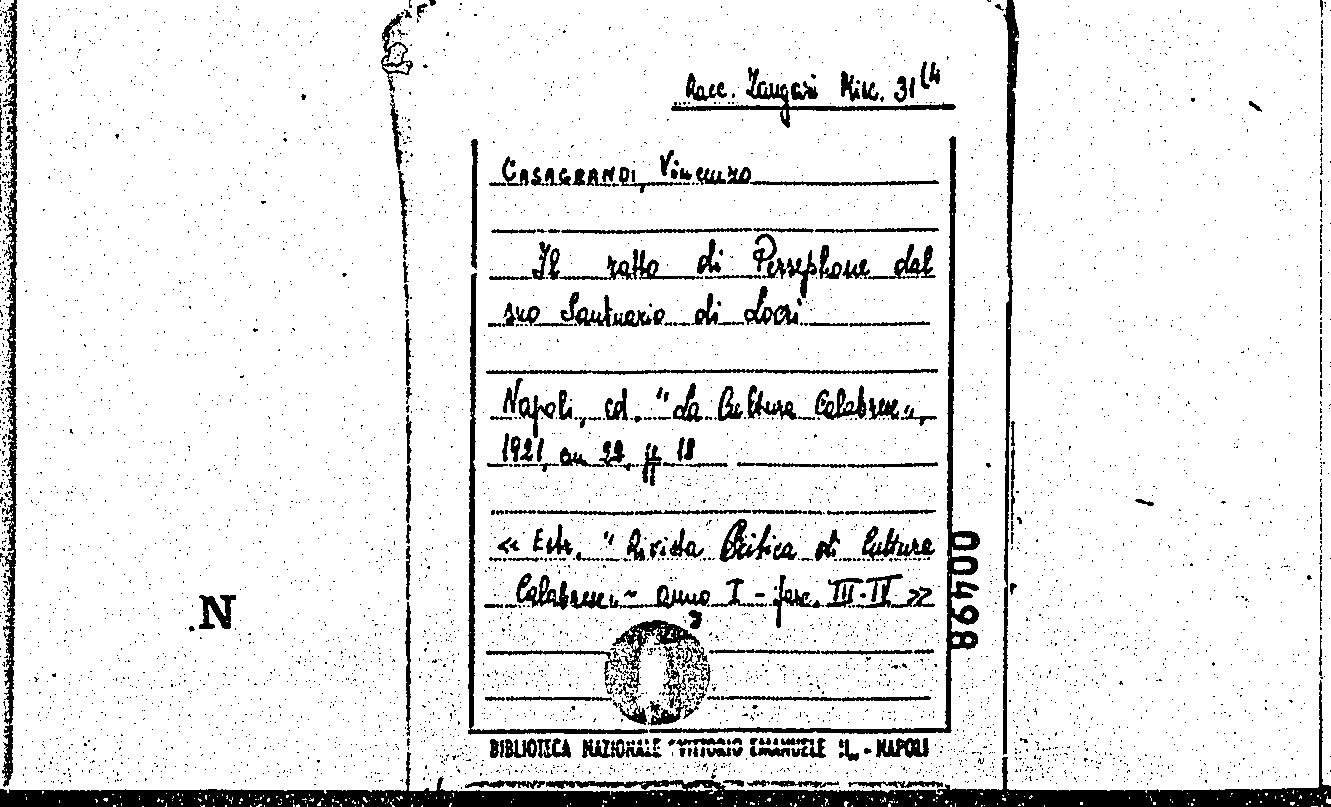 Racc. Zangari Misc. 31(4
CASAGRANDI, Vincenzo
Il ratto di Persephone dal
suo Santuario di Locri
Napoli, ed. "La Cultura Calabrese",
1921, 22. 18
« Estr. "Rivista Critica di Cultura
Calabrese" - anno I - fasc. III-IV »
00498
N
BIBLIOTECA NAZIONALE "VITTORIO EMANUELE III" - NAPOLI